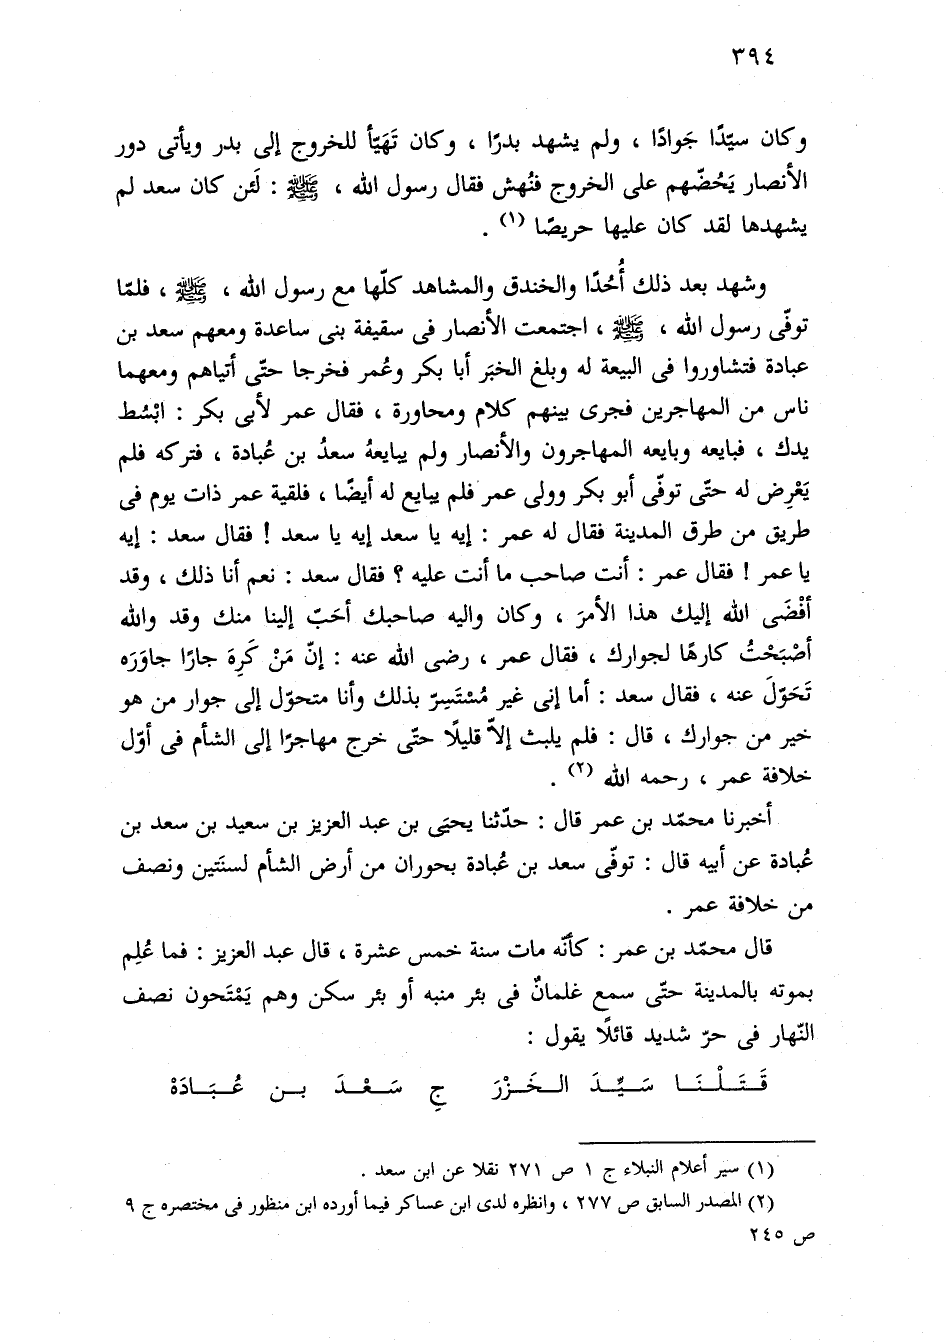 ٣٩٤
وكان سيّدًا جَوادًا ، ولم يشهد بدرًا ، وكان تَهَيّأ للخروج إلى بدر ويأتى دور
الأنصار يَحُضّهم على الخروج فنُهش فقال رسول الله ، ﷺ : لَئن كان سعد لم
يشهدها لقد كان عليها حريصًا (١) .
وشهد بعد ذلك أُحُدًا والخندق والمشاهد كلّها مع رسول الله ، ﷺ ، فلمّا
توفّى رسول الله ، ﷺ ، اجتمعت الأنصار فى سقيفة بنى ساعدة ومعهم سعد بن
عبادة فتشاوروا فى البيعة له وبلغ الخبَر أبا بكر وعُمر فخرجا حتّى أتياهم ومعهما
ناس من المهاجرين فجرى بينهم كلام ومحاورة ، فقال عمر لأبى بكر : ابْسُط
يدك ، فبايعه وبايعه المهاجرون والأنصار ولم يبايعهُ سعدُ بن عُبادة ، فتركه فلم
يَعْرِض له حتّى توفّى أبو بكر وولى عمر فلم يبايع له أيضًا ، فلقية عمر ذات يوم فى
طريق من طرق المدينة فقال له عمر : إيه يا سعد إيه يا سعد ! فقال سعد : إيه
يا عمر ! فقال عمر : أنت صاحب ما أنت عليه ؟ فقال سعد : نعم أنا ذلك ، وقد
أفْضَى الله إليك هذا الأمرَ ، وكان واليه صاحبك أحَبّ إلينا منك وقد والله
أصْبَحْتُ كارهًا لجوارك ، فقال عمر ، رضى الله عنه : إنّ مَنْ كَرِهَ جارًا جاوَرَه
تَحَوّلَ عنه ، فقال سعد : أما إنى غير مُسْتَسِرّ بذلك وأنا متحوّل إلى جوار من هو
خير من جوارك ، قال : فلم يلبث إلاّ قليلًا حتّى خرج مهاجرًا إلى الشأم فى أوّل
خلافة عمر ، رحمه الله (٢) .
أخبرنا محمّد بن عمر قال : حدّثنا يحيَى بن عبد العزيز بن سعيد بن سعد بن
عُبادة عن أبيه قال : توفّى سعد بن عُبادة بحوران من أرض الشأم لسنَتين ونصف
من خلافة عمر .
قال محمّد بن عمر : كأنّه مات سنة خمس عشرة ، قال عبد العزيز : فما عُلِم
بموته بالمدينة حتّى سمع غلمانٌ فى بئر منبه أو بئر سكن وهم يَمْتَحون نصف
النّهار فى حرّ شديد قائلًا يقول :
قَتَلْنَا سَيِّدَ الخَزْرَ جِ سَعْدَ بن عُبَادَهْ
(١) سير أعلام النبلاء ج ١ ص ٢٧١ نقلا عن ابن سعد .
(٢) المصدر السابق ص ٢٧٧ ، وانظره لدى ابن عساكر فيما أورده ابن منظور فى مختصره ج ٩
ص ٢٤٥